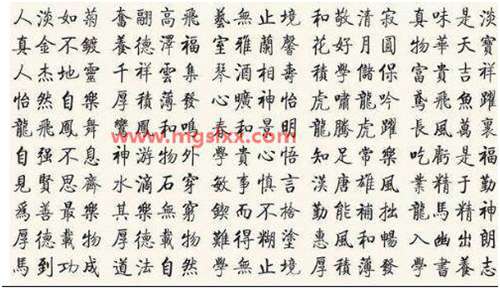 人淡如菊 奮翮高飛 藝無止境 和敬清寂 真味是淡
真金不鍍 養德澤福 室雅蘭馨 花好月圓 物華天寶
人杰地靈 千祥雲集 琴酒相壽 積學儲保 富貴吉祥
怡然自樂 厚積薄發 心曠神怡 虎嘯龍吟 鳶飛魚躍
龍飛鳳舞 鸞鳳和鳴 春和景明 龍騰虎躍 長風萬里
www.mgslxx.com
自强不息 神游物外 學貴心悟 知足常樂 吃虧是福
見賢思齊 水滴石穿 敏事慎言 漢唐雄風 業精于勤
爲善最樂 其樂無窮 鍥而不捨 勤能補拙 龍馬精神
厚德載物 厚德載物 難得糊塗 惠風和暢 入幽出朗
馬到功成 道法自然 學無止境 厚積薄發 學書養志